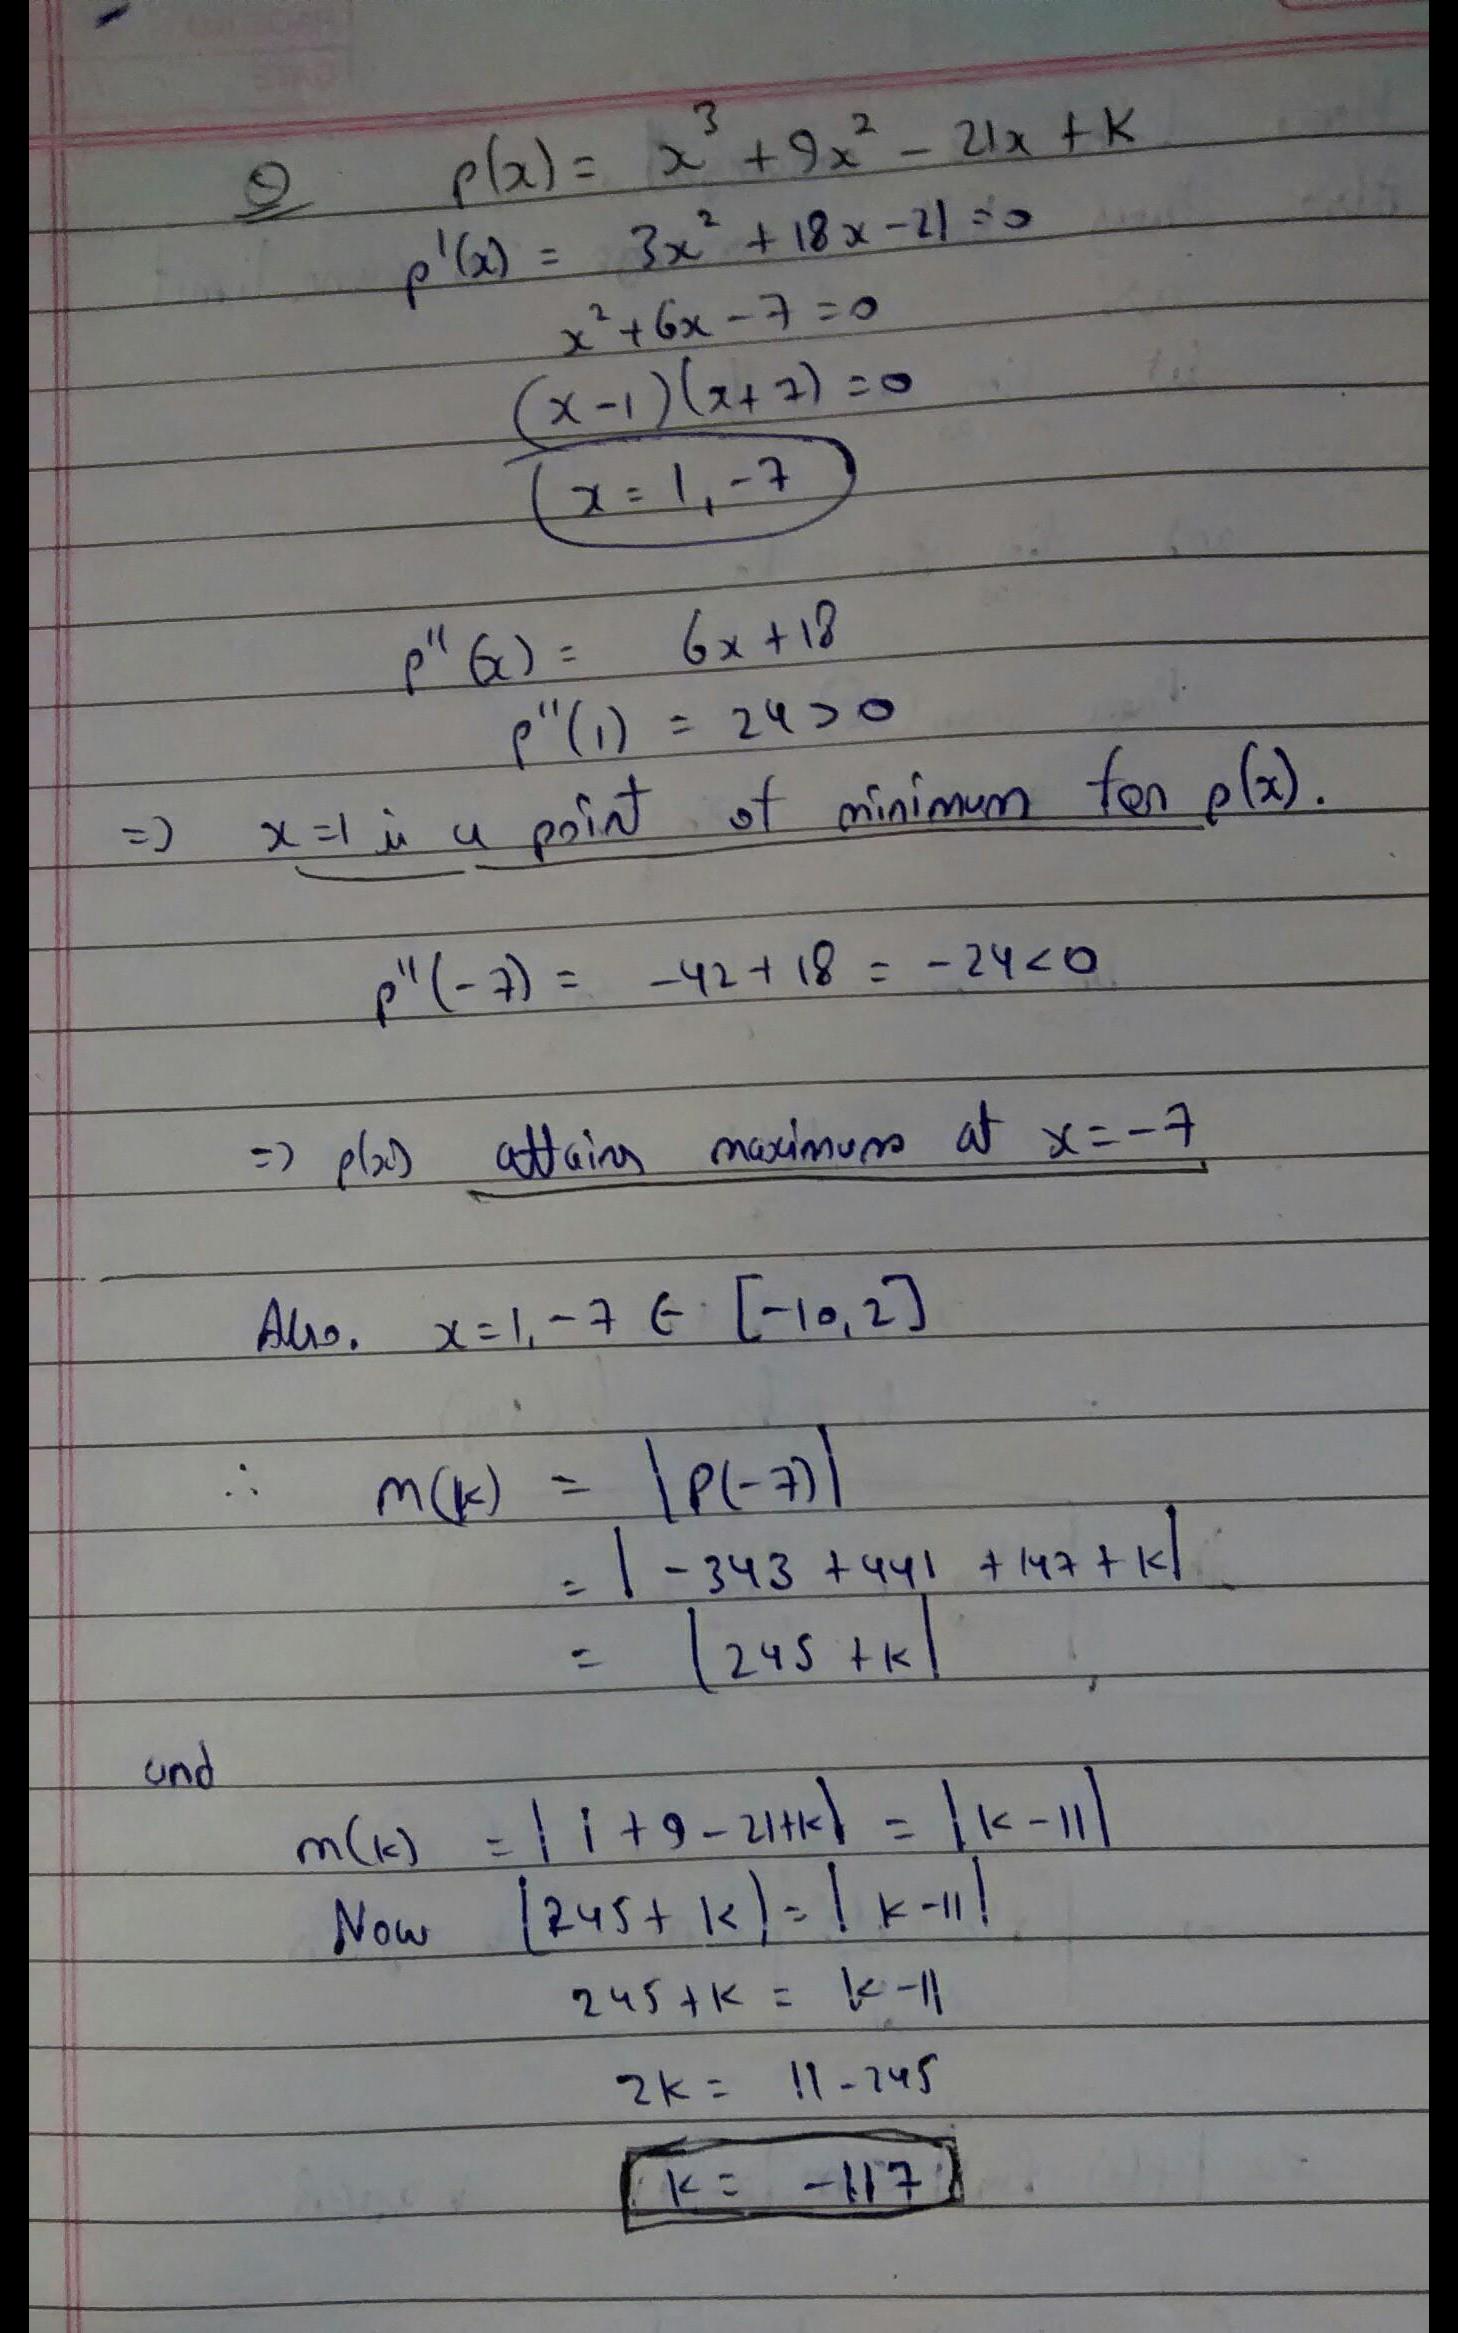 Q p(x) = x³ + 9x² - 21x + K
p'(x) = 3x² + 18x - 21 = 0
x² + 6x - 7 = 0
(x-1)(x+7) = 0
x = 1, -7
p"(x) = 6x + 18
p"(1) = 24 > 0
=> x=1 is a point of minimum for p(x).
p"(-7) = -42 + 18 = -24 < 0
=> p(x) attains maximum at x = -7
Also. x = 1, -7 ∈ [-10, 2]
∴ m(k) = |P(-7)|
= |-343 + 441 + 147 + k|
= |245 + k|
and
m(k) = |1 + 9 - 21 + k| = |k - 11|
Now |245 + k| = |k - 11|
245 + k = k - 11
2k = 11 - 245
k = -117